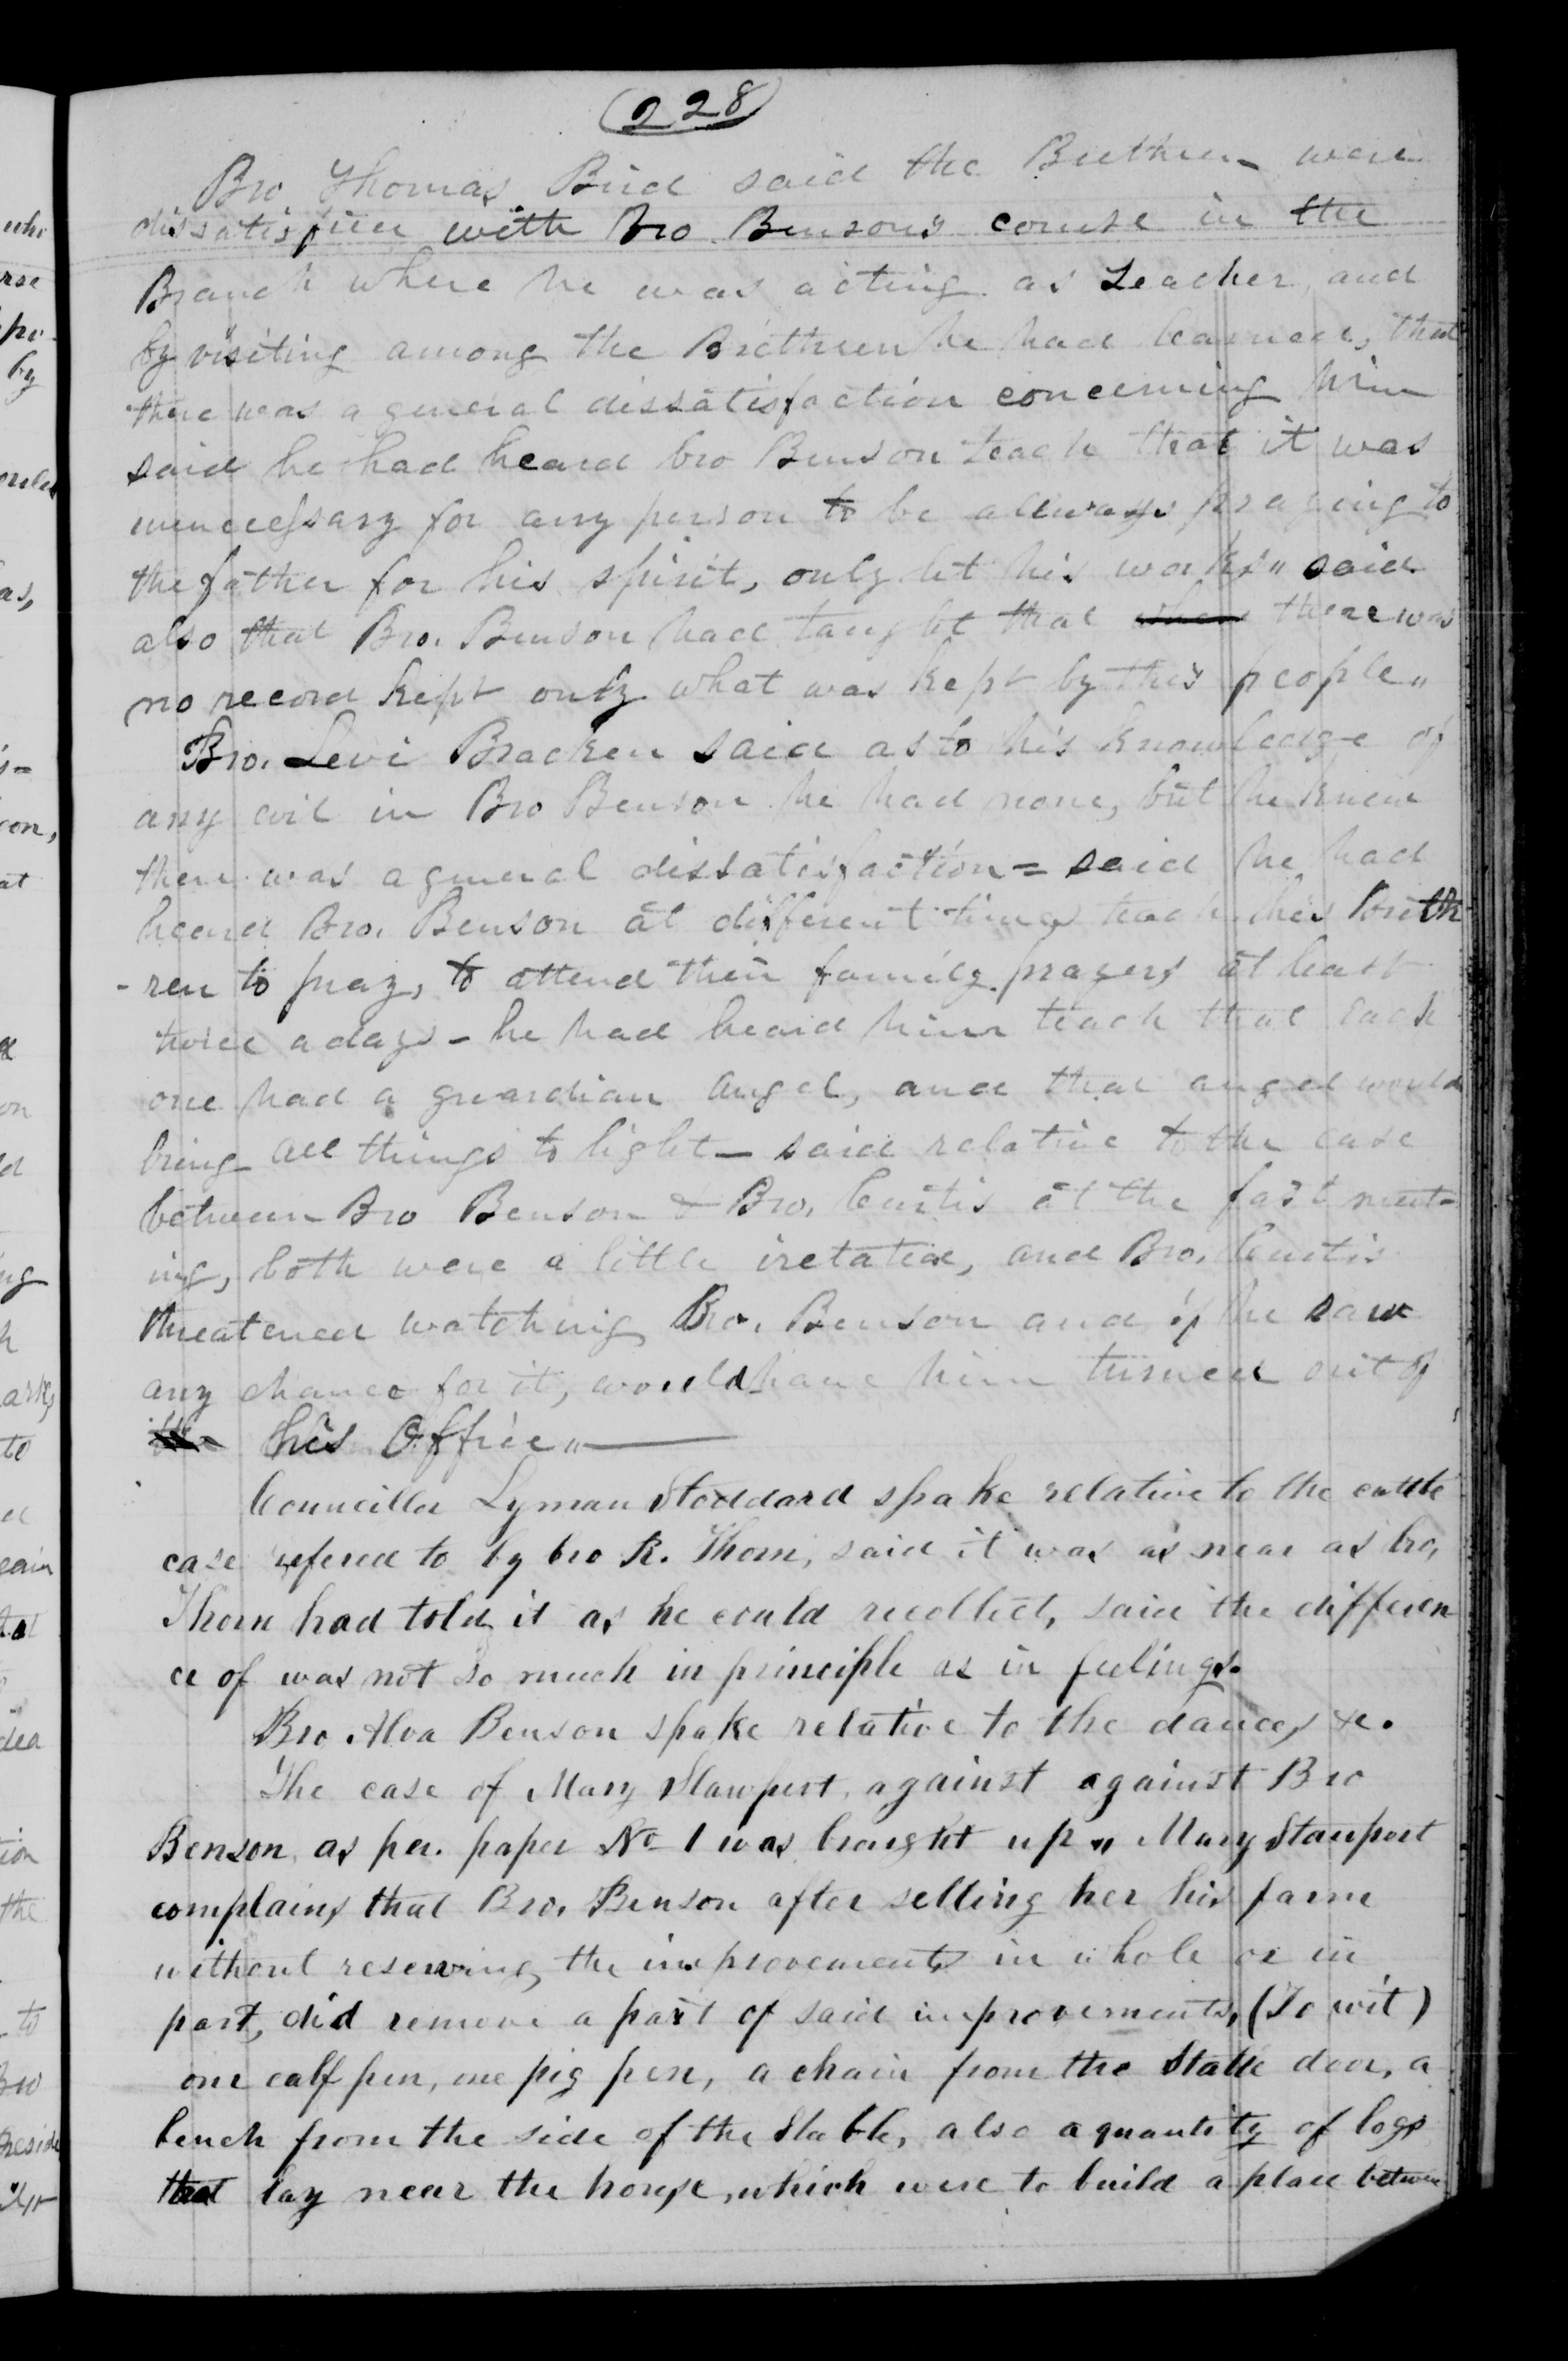 (228)
Bro Thomas Bird said the Brethren were
dissatisfied with Bro Benson's course in the
Branch where he was acting as Teacher, and
by visiting among the Brethren he had learned, that
there was a general dissatisfaction concerning him
said he had heard bro Benson teach that it was
unnecessary for any person to be allways praying to
the father for his spirit, only let his works" said
also that Bro. Benson had taught that there was
no record kept only what was kept by this people"
Bro. Levi Bracken said as to his knowledge of
any evil in Bro Benson he had none, but he knew
there was a general dissatisfaction = said he had
heard Bro. Benson at different times teach his breth
-ren to pray, to attend their family prayers at least
twice a days - he had heard him teach that each
one had a guardian angel, and that angel would
bring all things to light - said relative to the case
between Bro Benson & Bro. Curtis at the fast meet-
ing, both were a little iretated, and Bro. Curtis
threatened watching Bro. Benson and if he saw
any chance for it, would have him turned out of
his Office"
Councillor Lyman Stoddard spake relative to the cattle
case refered to by bro R. Thorn, said it was as near as bro,
Thorn had told it as he could recollect, said the differen
ce of was not so much in principle as in feelings.
Bro Alva Benson spake relative to the dances &c.
The case of Mary Stanport, against against Bro
Benson as per. paper No 1 was brought up " Mary Stanport
complains that Bro. Benson after selling her his farm
without reserving the improvements in whole or in
part, did remove a part of said improvements, (To wit)
one calf pen, one pig pen, a chain from the Stable door, a
bench from the side of the Stable, also a quantity of logs
that lay near the house, which were to build a place between
who
rse
by
as,
con,
at
on
ng
arks
to
idea
tion
the
to
Bro